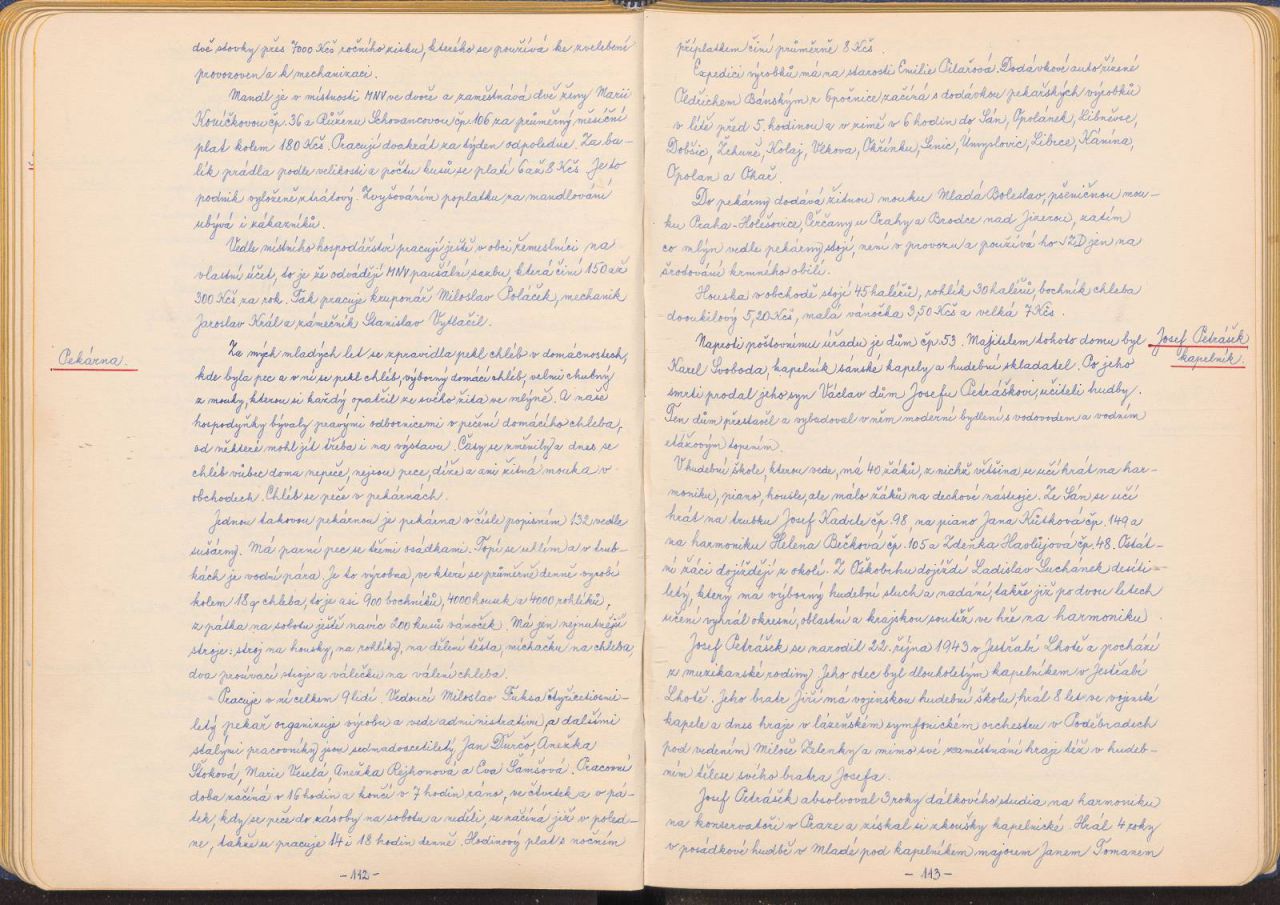 dvě stovky přes 7000 Kčs ročního zisku, kterého se používá ke zvelebení
provozoven a k mechanizaci.
Mandl je v místnosti MNV ve dvoře a zaměstnává dvě ženy Marii
Koníčkovou čp. 36 a Růženu Schovancovou čp. 106 za průměrný měsíční
plat kolem 180 Kčs. Pracují dvakrát za týden odpoledne. Za ba-
lík prádla podle velikosti a počtu kusů se platí 6 až 8 Kčs. Je to
podnik vyloženě ztrátový. Zvyšováním poplatku za mandlování
ubývá i zákazníků.
Vedle místního hospodářství pracují ještě v obci řemeslníci na
vlastní účet, to je že odvádějí MNV paušální sazbu, která činí 150 až
300 Kčs za rok. Tak pracuje kruponář Miloslav Poláček, mechanik
Jaroslav Král a zámečník Stanislav Vytlačil.
Pekárna.
Za mých mladých let se zpravidla pekl chléb v domácnostech,
kde byla pec a v ní se pekl chléb, výborný domácí chléb, velmi chutný
z mouky, kterou si každý opatřil ze svého žita ve mlýně. A naše
hospodyňky bývaly pravými odbornicemi v pečení domácího chleba,
od některé mohl jít třeba i na výstavu. Časy se změnily a dnes se
chléb vůbec doma nepeče, nejsou pece, díže a ani žitná mouka v
obchodech. Chléb se peče v pekárnách.
Jednou takovou pekárnou je pekárna v čísle popisném 132 vedle
sušárny. Má parní pec se třemi osádkami. Topí se uhlím a v trub-
kách je vodní pára. Je to výrobna, ve které se průměrně denně vyrobí
kolem 18 q chleba, to je asi 900 bochníků, 4000 housek a 4000 rohlíků,
z pátka na sobotu ještě navíc 200 kusů vánoček. Má jen nejnutnější
stroje: stroj na housky, na rohlíky, na dělení těsta, míchačku na chleba,
dva prosívací stroje a válečku na válení chleba.
Pracuje v ní celkem 9 lidí. Vedoucí Miloslav Fuksa čtyřicetiosmi-
letý pekař organizuje výrobu a vede administrativu, a dalšími
stálými pracovníky jsou sedmadvacetiletý Jan Durčo, Anežka
Štoková, Marie Veselá, Anežka Rejhonová a Eva Šamšová. Pracovní
doba začíná v 16 hodin a končí v 7 hodin ráno, ve čtvrtek a v pá-
tek, kdy se peče do zásoby na sobotu a neděli, se začíná již v poled-
ne, takže se pracuje 14 i 18 hodin denně. Hodinový plat s nočním
- 112 -
příplatkem činí průměrně 8 Kčs.
Expedici výrobků má na starosti Emilie Pilařová. Dodávkové auto řízené
Oldřichem Bánským z Opočnice začíná s dodávkou pekařských výrobků
v létě před 5. hodinou a v zimě v 6 hodin do Sán, Opolánek, Libněvse,
Dobšic, Žehuně, Kolaj, Vlkova, Okřínku, Senic, Úmyslovic, Librce, Kánína,
Opolan a Okac.
Do pekárny dodává žitnou mouku Mladá Boleslav, pšeničnou mou-
ku Praha-Holešovice, Čerčany u Prahy a Brodce nad Jizerou, zatím
co mlýn vedle pekárny stojí, není v provozu a používá ho JZD jen na
šrotování krmného obilí.
Houska v obchodě stojí 45 haléřů, rohlík 30 haléřů, bochník chleba
dvoukilový 5,20 Kčs, malá vánočka 3,50 Kčs a velká 7 Kčs.
Josef Petrášek
kapelník.
Naproti poštovnímu úřadu je dům čp. 53. Majitelem tohoto domu byl
Karel Svoboda, kapelník sánské kapely a hudební skladatel. Po jeho
smrti prodal jeho syn Václav dům Josefu Petráškovi, učiteli hudby.
Ten dům přestavěl a vybudoval v něm moderní bydlení s vodovodem a vodním
etážovým topením.
V hudební škole, kterou vede, má 40 žáků, z nichž většina se učí hrát na har-
moniku, piano, housle, ale málo žáků na dechové nástroje. Ze Sán se učí
hrát na trubku Josef Kadrle čp. 98 na piano Jana Kůtková čp. 149 a
na harmoniku Helena Bečková čp. 105 a Zdeňka Havlůjová čp. 48. Ostat-
ní žáci dojíždějí z okolí. Z Oškobrhu dojíždí Ladislav Suchánek deseti-
letý, který má výborný hudební sluch a nadání, takže již po dvou letech
učení vyhrál okresní, oblastní a krajskou soutěž ve hře na harmoniku.
Josef Petrášek se narodil 22. října 1943 v Jestřabí Lhotě a pochází
z muzikanské rodiny. Jeho otec byl dlouholetým kapelníkem v Jestřabí
Lhotě. Jeho bratr Jiří má vojenskou hudební školu, hrál 8 let ve vojenské
kapele a dnes hraje v lázeňském symfonickém orchestru v Poděbradech
pod vedením Miloše Zelenky a mimo své zaměstnání hraje též v hudeb-
ním tělese svého bratra Josefa.
Josef Petrášek absolvoval 3 roky dálkového studia na harmoniku
na konservatoři v Praze a získal si zkoušky kapelnické. Hrál 4 roky
v posádkové hudbě v Mladé pod kapelníkem majorem Janem Tomanem
- 113 -